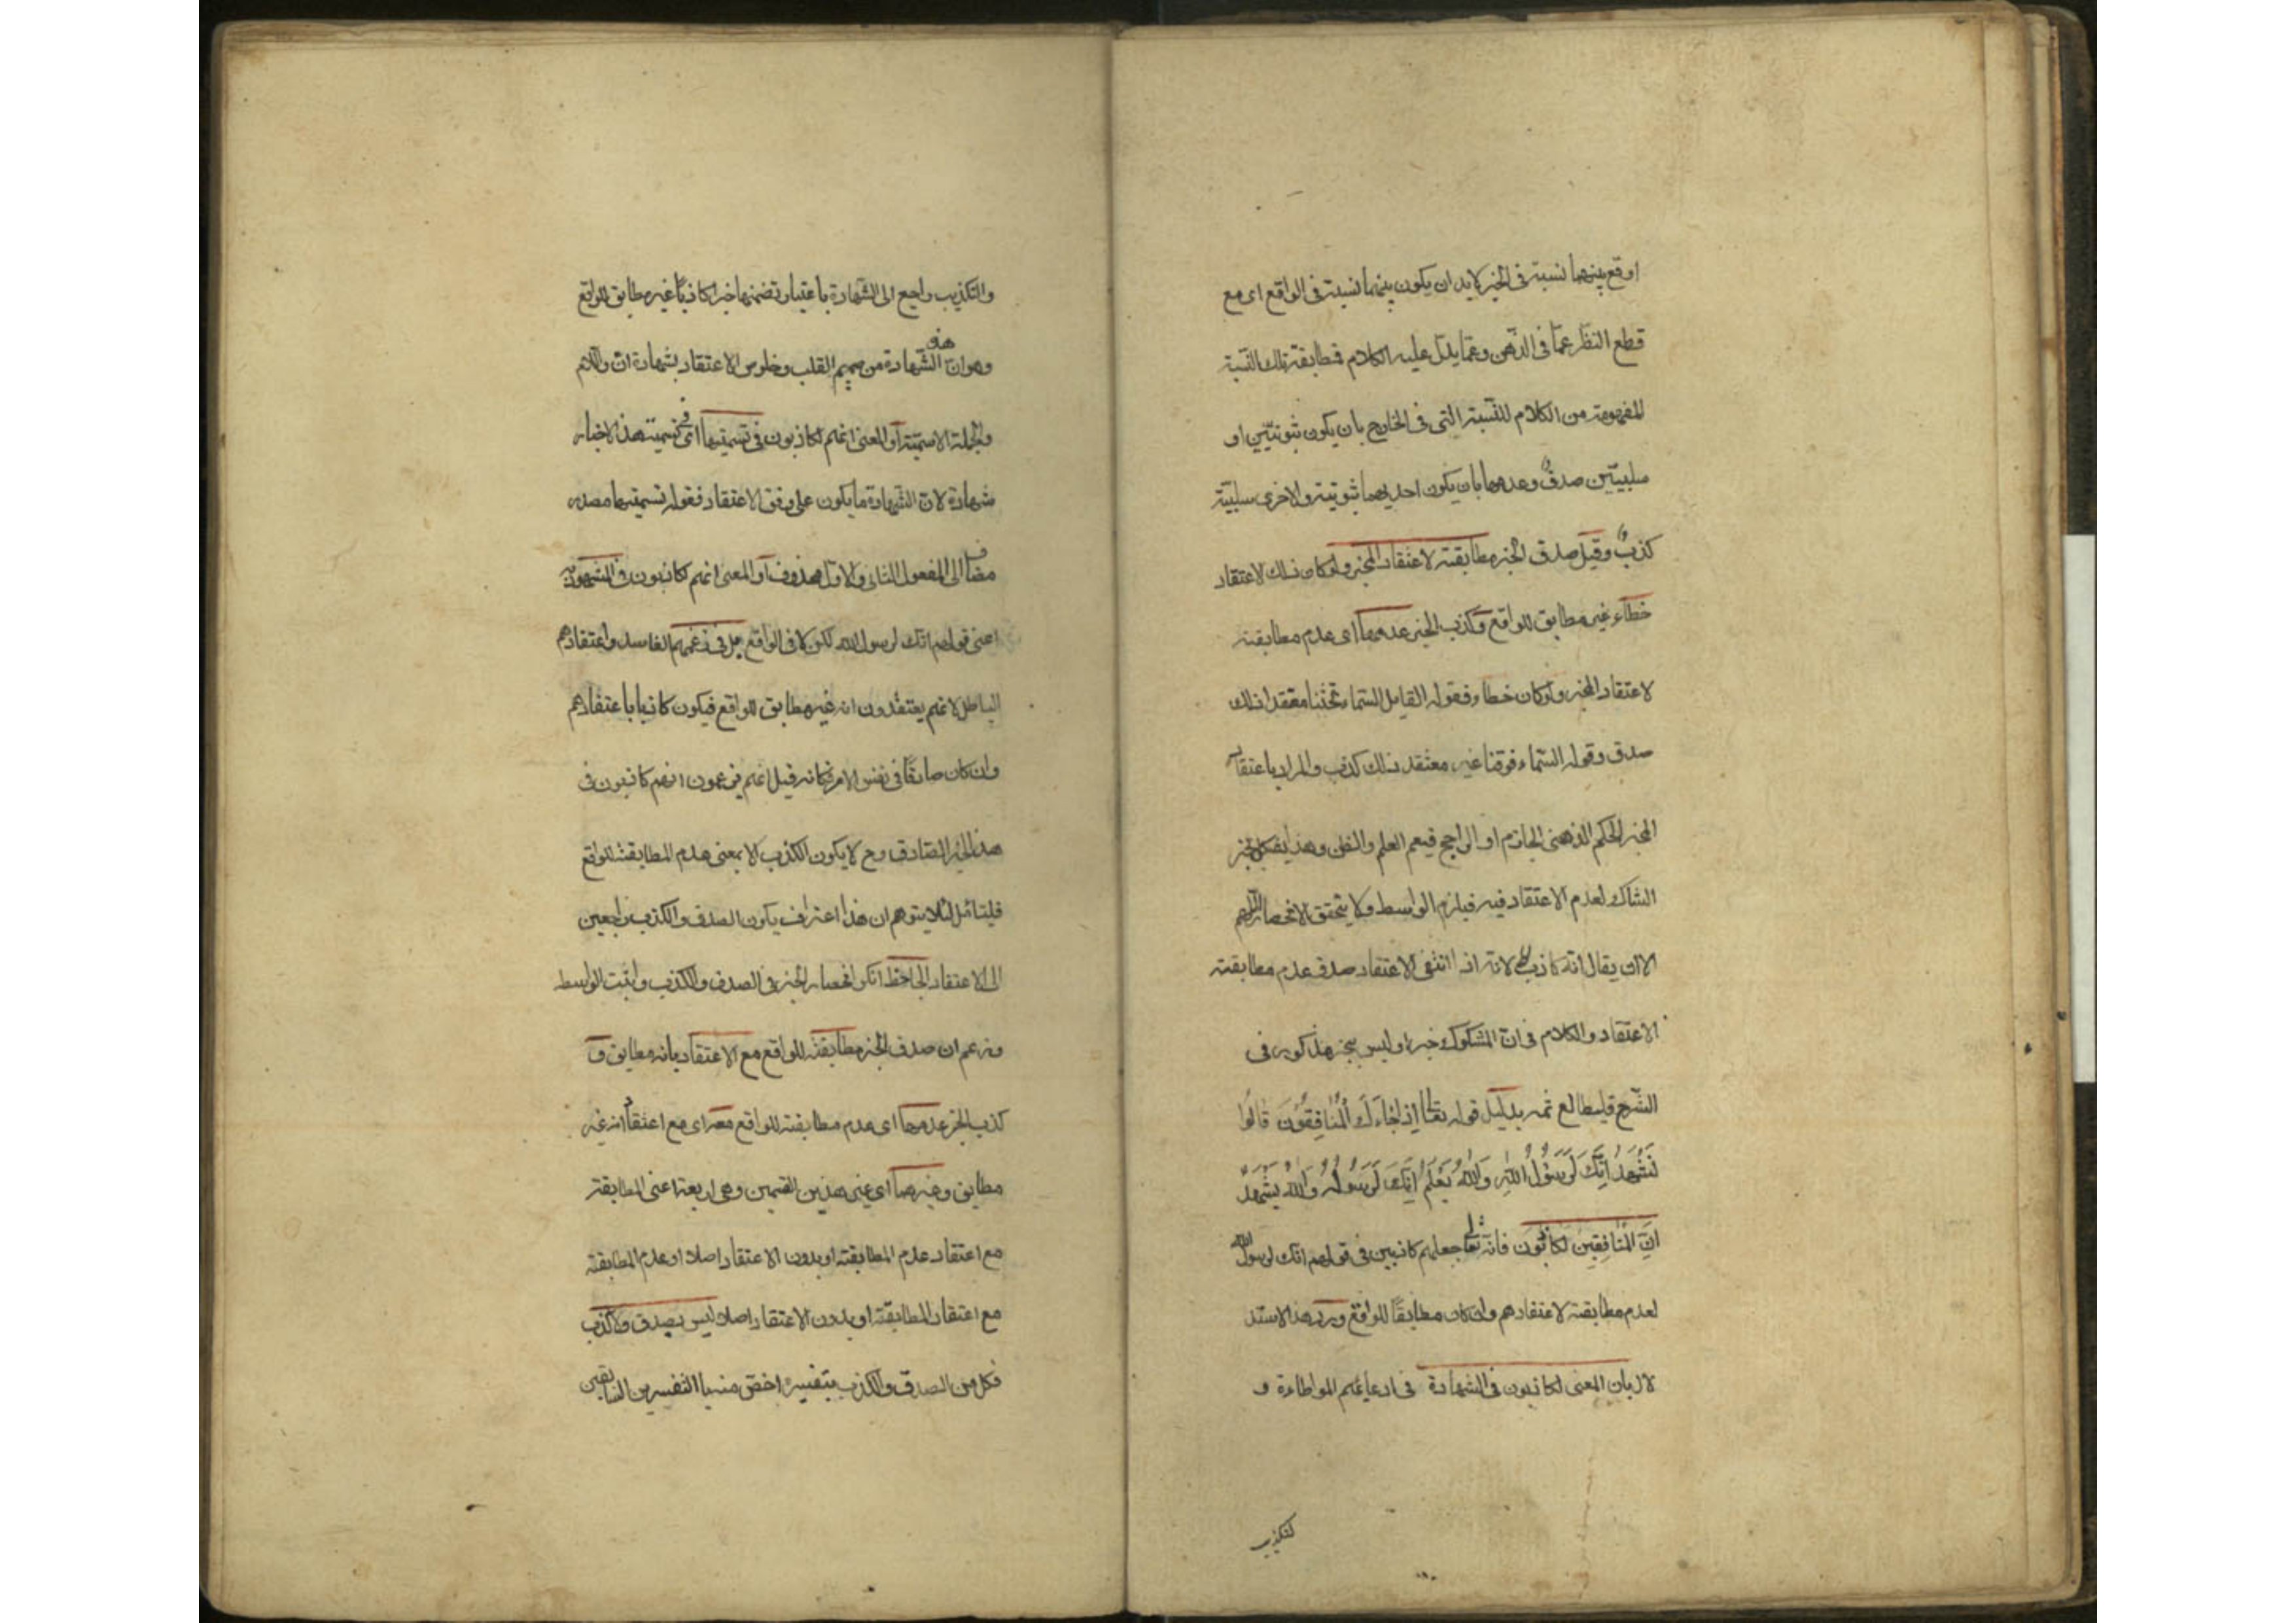 اوقع بينهما نسبة فى الخبر لابد ان يكون بينهما نسبة فى الواقع اى مع
قطع النظر عمّا فى الذهن وعمّا يدلّ عليه الكلام فمطابقة تلك النّسبة
المفهومة من الكلام للنّسبة التى فى الخارج بان يكون ثبوتيّتين او
سلبيّتين صدقٌ وعدمها بان يكون احديهما ثبوتية والاخرى سلبيّة
كذبٌ وقيل صدق الخبر مطابقته لاعتقاد المخبر ولو كان ذلك الاعتقاد
خطاء غير مطابق للواقع وكذب الخبر عدمها اى عدم مطابقته
لاعتقاد المخبر ولو كان خطاء فقول القايل السّماء تحتنا معتقدا ذلك
صدق وقوله السّماء فوقنا غير معتقد ذلك كذب والمراد باعتقاد
المخبر الحكم الذهنى الجازم او الراجح فيعم العلم والظن وهذا يشكل بخبر
الشاك لعدم الاعتقاد فيه فيلزم الواسطة ولا يتحقق الانحصار اللّهم
الا ان يقال انّه كاذب لانّه اذا انتفى الاعتقاد صدق عدم مطابقته
الاعتقاد والكلام فى انّ المشكوك خبر او ليس بخبر مذكور فى
الشّرح فليطالع ثمه بدليل قوله تعالى اِذا جَاءَكَ الْمُنافِقُونَ قالُوا
نَشْهَدُ اِنَّكَ لَرَسُولُ اللّٰهِ وَاللّٰهُ يَعْلَمُ اِنَّكَ لَرَسُولُهُ وَاللّٰهُ يَشْهَدُ
اِنَّ الْمُنافِقينَ لَكاذِبُون فانّه تعالى جعلهم كاذبين فى قولهم انّك لرسول الله
لعدم مطابقته لاعتقادهم وان كان مطابقًا للواقع وردّ هذا الاستد
لال بان المعنى لكاذبون فى الشهادة فى ادعائهم المواطاءة و
لتكذيب
والتكذيب راجع الى الشّهادة باعتبار تضمنها خبرا كاذبًا غير مطابق للواقع
وهو انّ هذه الشّهادة من صميم القلب وخلوص الاعتقاد بشهادة انّ واللام
والجملة الاسميّة او المعنى انّهم لكاذبون فى تسميتها اى فى تسمية هذا الاخبار
شهادة لانّ الشّهادة ما يكون على وفق الاعتقاد فقوله تسميتها مصدر
مضاف الى المفعول الثانى والاوّل محذوف او المعنى انهم لكاذبون فى المشهود به
اعنى قولهم انّك لرسول الله لكن لا فى الواقع بل فى زعمهم الفاسد واعتقادهم
الباطل لانهم يعتقدون انه غير مطابق للواقع فيكون كاذبا باعتقادهم
وان كان صادقًا فى نفس الامر فكانه قيل انهم يزعمون انهم كاذبون فى
هذا الخبر الصّادق وح لا يكون الكذب الا بمعنى عدم المطابقة للواقع
فليتأمّل لئلا يتوهم ان هذا اعتراف بكون الصدق والكذب راجعين
الى الاعتقاد الجاحظ انكر انحصار الخبر فى الصدق والكذب واثبت الواسطة
وزعم ان صدق الخبر مطابقته للواقع مع الاعتقاد بانه مطابق و
كذب الخبر عدمها اى عدم مطابقته للواقع معه اى مع اعتقاد انه غير
مطابق وغيرهما اى غير هذين القسمين وهى اربعة اعنى المطابقة
مع اعتقاد عدم المطابقة او بدون الاعتقاد اصلا او عدم المطابقة
مع اعتقاد المطابقة او بدون الاعتقاد اصلا ليس بصدق ولا كذب
فكل من الصدق والكذب بتفسيره اخصّ منه بالتفسيرين السابقين